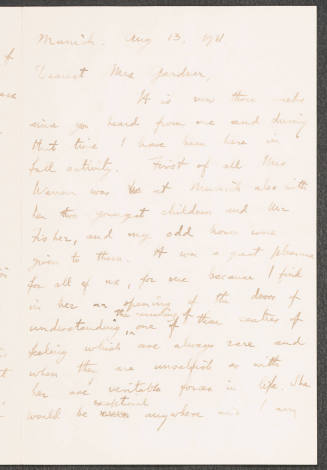 Munich. Aug 13, 1911
Dearest Mrs Gardner,
It is now three weeks
since you heard from me and during
that time I have been here in
full activity. First of all Mrs
Warren was at Munich also with
her two youngest children and Mr
Fisher, and my odd hours were
given to them. It was a great pleasure
for all of us, for me because I find
in her an opening of the door of
understanding, the meeting in one of those centres of
feeling which are always rare and
when they are unselfish as with
her are veritable forces in life. She
would be exceptional anywhere and I am